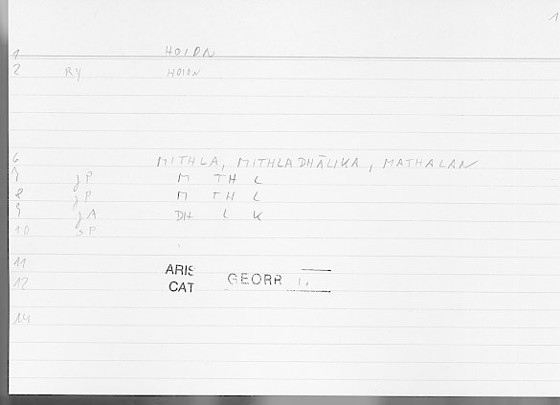 1
1 HOION
2 RY HOION
6 MITHLA, MITHLADHĀLIKA, MATHALAN
7 gP M TH L
8 gP M TH L
9 gA DH L K
10 SP
11 ARIS
12 CAT GEORR
14